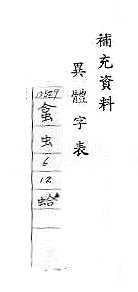 補充資料
異體字表
虫
6
12
蛤